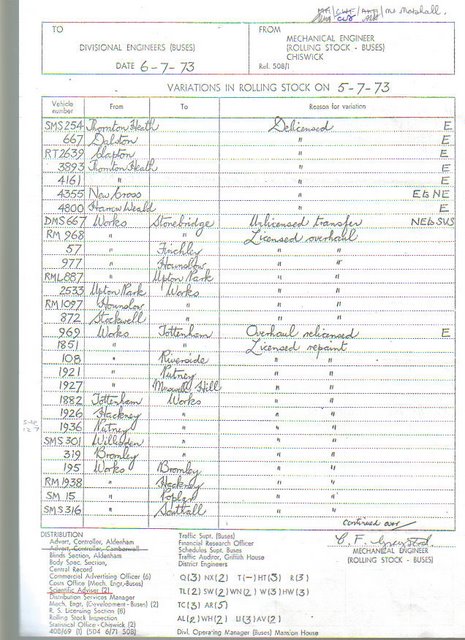 Mr Marshall.
TO
DIVISIONAL ENGINEERS (BUSES)
DATE 6-7-73
FROM
MECHANICAL ENGINEER
(ROLLING STOCK - BUSES)
CHISWICK
Ref. 508/1
VARIATIONS IN ROLLING STOCK ON 5-7-73
Vehicle number From To Reason for variation
SMS 254 Thornton Heath Delicensed E
667 Dalston " E
RT 2639 Clapton " E
3893 Thornton Heath " E
4161 " " E
4355 New Cross " E to NE
4800 Harrow Weald " E
DMS 667 Works Stonebridge Unlicensed transfer NE to SUS
RM 968 " " Licensed overhaul
57 " Finchley " "
977 " Hounslow " "
RML 887 " Upton Park " "
2533 Upton Park Works " "
RM 1097 Hounslow " " "
872 Stockwell " " "
969 Works Tottenham Overhaul relicensed E
1851 " " Licensed repaint
108 " Riverside " "
1921 " Putney " "
1927 " Muswell Hill " "
1882 Tottenham Works " "
1926 Hackney " " "
1936 Putney " " "
SMS 301 Willesden " " "
319 Bromley " " "
195 Works Bromley " "
RM 1938 " Hackney " "
SM 15 " Poplar " "
SMS 316 " Southall " "
continued over
DISTRIBUTION
Advert. Controller, Aldenham
Advert. Controller, Camberwell
Blinds Section, Aldenham
Body Spec. Section,
Central Record
Commercial Advertising Officer (6)
Costs Office (Mech. Engr.-Buses)
Scientific Adviser (2)
Distribution Services Manager
Mech. Engr. (Development - Buses) (2)
R. S. Licensing Section (6)
Rolling Stock Inspection
Statistical Office - Chiswick (2)
400/69 (1) (504 6/71 508)
Traffic Supt. (Buses)
Financial Research Officer
Schedules Supt. Buses
Traffic Auditor, Griffith House
District Engineers
Q (3) NX (2) T (-) HT (3) R (3)
TL (2) SW (2) WN (2) W (3) HW (3)
TC (3) AR (5)
AL (2) WH (2) U (3) AV (2)
Divl. Operating Manager (Buses) Mansion House
MECHANICAL ENGINEER
(ROLLING STOCK - BUSES)